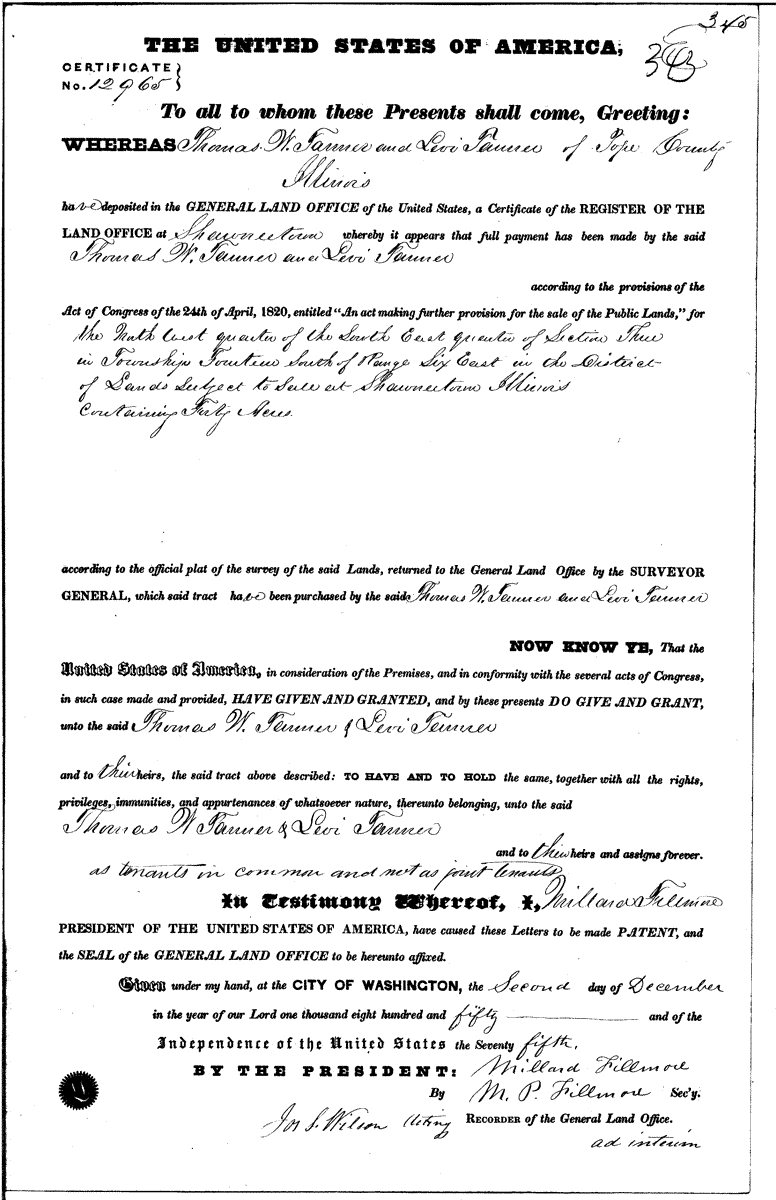 345
THE UNITED STATES OF AMERICA,
CERTIFICATE
No. 12965
To all to whom these Presents shall come, Greeting:
WHEREAS Thomas W. Tanner and Levi Tanner of Pope County
Illinois
have deposited in the GENERAL LAND OFFICE of the United States, a Certificate of the REGISTER OF THE
LAND OFFICE at Shawneetown whereby it appears that full payment has been made by the said
Thomas W. Tanner and Levi Tanner
according to the provisions of the
Act of Congress of the 24th of April, 1820, entitled "An act making further provision for the sale of the Public Lands," for
the North West quarter of the South East quarter of Section Three
in Township Fourteen South of Range Six East in the District
of Lands Subject to Sale at Shawneetown Illinois
Containing Forty Acres.
according to the official plat of the survey of the said Lands, returned to the General Land Office by the SURVEYOR
GENERAL, which said tract have been purchased by the said Thomas W. Tanner and Levi Tanner
NOW KNOW YE, That the
United States of America, in consideration of the Premises, and in conformity with the several acts of Congress,
in such case made and provided, HAVE GIVEN AND GRANTED, and by these presents DO GIVE AND GRANT,
unto the said Thomas W. Tanner & Levi Tanner
and to their heirs, the said tract above described: TO HAVE AND TO HOLD the same, together with all the rights,
privileges, immunities, and appurtenances of whatsoever nature, thereunto belonging, unto the said
Thomas W Tanner & Levi Tanner
and to their heirs and assigns forever.
as tenants in common and not as joint tenants
In Testimony Whereof, I, Millard Fillmore
PRESIDENT OF THE UNITED STATES OF AMERICA, have caused these Letters to be made PATENT, and
the SEAL of the GENERAL LAND OFFICE to be hereunto affixed.
Given under my hand, at the CITY OF WASHINGTON, the Second day of December
in the year of our Lord one thousand eight hundred and fifty and of the
Independence of the United States the Seventy fifth.
BY THE PRESIDENT: Millard Fillmore
By M. P. Fillmore Sec'y.
Jos S. Wilson Acting RECORDER of the General Land Office.
ad interim